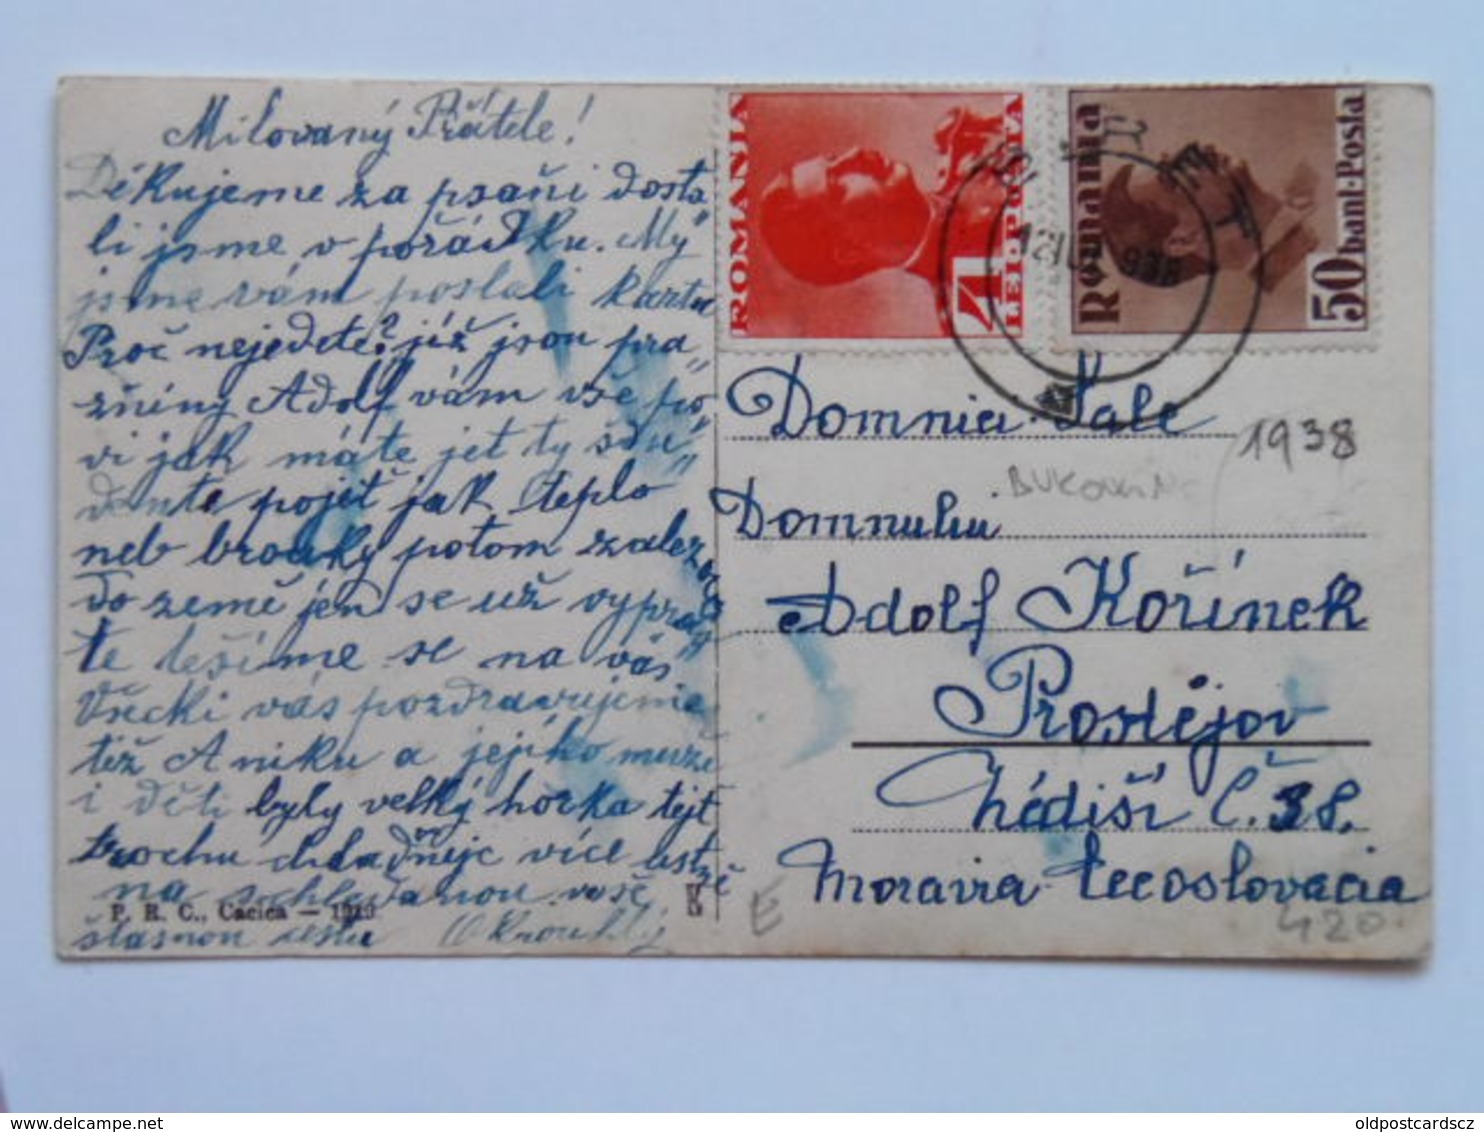 Milovaný Přátele!
Děkujeme za psaňi dosta
li jsme v pořádku. Mý
jsme vám poslali kartu
Proč nejedete? již jsou pra„
zňiny Adolf vám vše po„
vi jak máte jet ty šdu„
dente pojeť jak teplo
neb brouky potom zalezou
do země jen se už vypra
te tešime se na vás
Všecki vás pozdravujeme
též Aniku a jejiho muže
i děti byly velký horka tejť
trochu chladňejc více ustně
na schledanou vesč
P. R. C., Cacica — 1919
štasnou cestu Okrouhlý
ROMANIA
4
LEI POSTA
Romania
50 bani-Posta
1938
Domnia Sale
1938
BUKOVINA
Domnului
Adolf Kořínek
Prostějov
Č. 38.
Moravia Čecoslovacia
E
420
oldpostcardscz